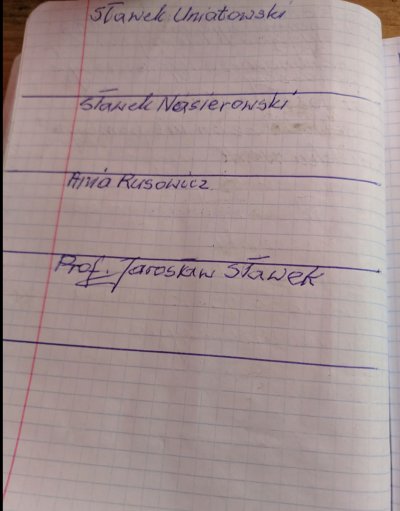 Sławek Uniatowski
Sławek Nasierowski
Ania Rusowicz
Prof. Jarosław Sławek